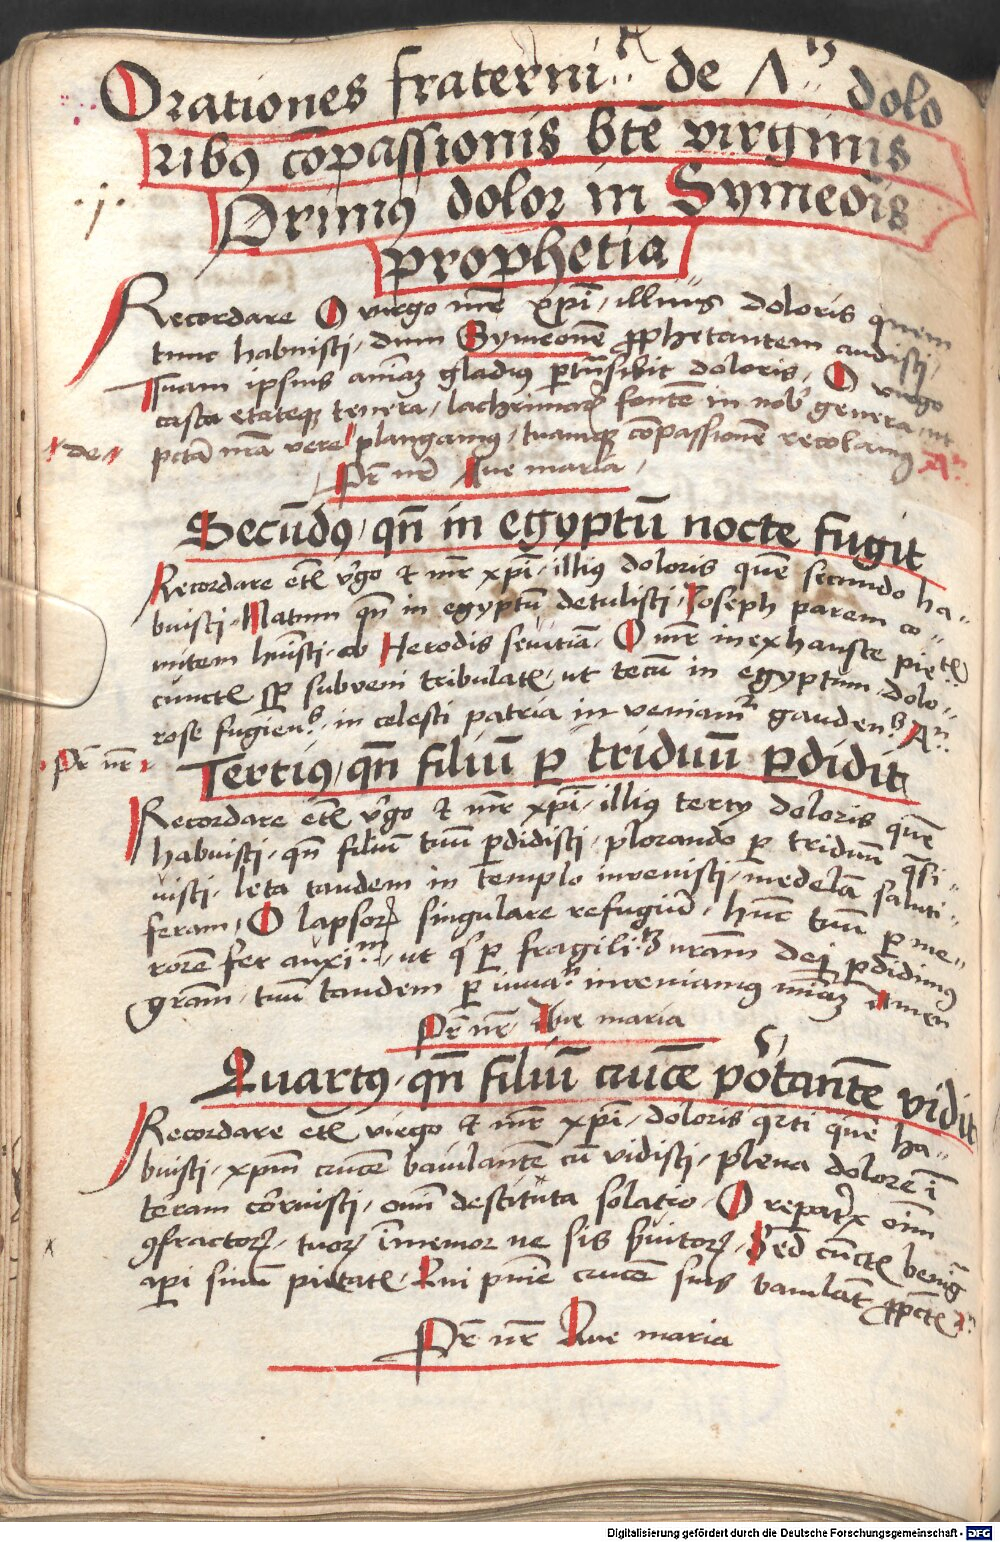 Orationes fraterni:: de Λ:is dolo
ribꝰ cōpassionis btē virginis
.j. Primꝰ dolor in Symeōis
prophetia
Recordare O virgo mr̄ xp̄i, illius doloris quem
tunc habuisti, dum Symeonē ꝓphetantem audisti,
Tuam ipsius aīaȝ gladius ꝑtn̄sibit doloris, O virgo
casta etateqȝ tenera, lachrimaꝝ fontē in nob̄ genera, ut
de pctā nr̄a vere plangamꝰ, tuamqȝ cōpassionē recolamꝰ A:n
Pr̄ nr̄ Aue maria,
Secūdꝰ, qn̄ in egyptū nocte fugit
Recordare etꝭ v̇go et mr̄ xp̄i, illiꝰ doloris quē secundo ha-
buisti, Natum qn̄ in egyptū detulisti, Joseph parem co-
mitem hūisti, ob Herodis seuitiā, O mr̄ inexhauste pietꝭ
cunctꝭ sꝑ subueni tribulatꝭ, ut tecū in egyptum dolo-
rose fugienˢ, in celesti patria inueniamʳ gaudenˢ A:n
Pr̄ nr̄ Tertiꝰ, qn̄ filiū ꝑ triduū ꝑdidit
Recordare etꝭ v̇go et mr̄ xp̄i, illiꝰ tercy doloris quē
habuisti, qn̄ filiū tuū ꝑdidisti, plorando ꝑ triduū q̄si-
uisti, leta tandem in templo inuenisti, medelā saluti-
feram, O lapsoꝝ singulare refugiū, hūc tuū ꝑ me-
rorē fer auxi:m, ut qͥ ꝑ fragili:s nr̄am dei ꝑdidimꝰ
gr̄am, tuū tandem ꝑ iuua:n inueniamꝰ mīaȝ Amen
Pr̄ nr̄ Aue maria
Quartꝰ, qn̄ filiū crucē pōtantē vidit
Recordare etꝭ virgo et mr̄ xp̄i, doloris qrti quē ha-
buisti, xp̄m crucē baiulantē cū vidisti, plena dolore ī
terram corruisti, omī destituta solatio, O repatͬx oīm
ꝯfractoꝝ, tuoꝝ īmemor ne sis s̄uitoꝝ, Sed cūctꝭ benīg
aꝑi sinū pietatꝭ, Qui pn̄ie crucē suis baiulāt
Pr̄ nr̄ Aue maria
Digitalisierung gefördert durch die Deutsche Forschungsgemeinschaft - DFG